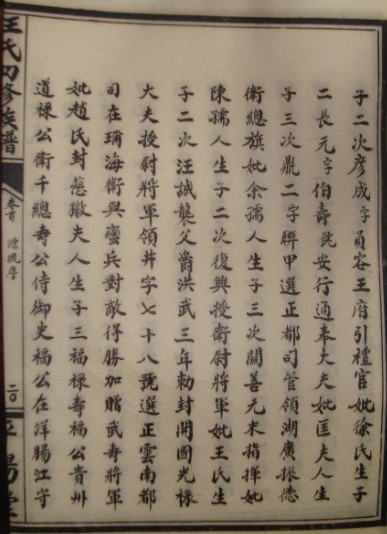 子二次彦成字員容王府引禮官妣徐氏生子
二長元字伯壽 安行通奉大夫妣匡夫人生
子三次鼎二字聯甲選正都司管領湖廣振德
衛總旗妣余孺人生子三次關善元末指揮妣
陳孺人生子二次復興授衛尉將軍妣王氏生
子二次汪誠襲父爵洪武三年勅封開國光祿
大夫授尉將軍領井字七十八號選正雲南都
司在瑞海衛興蠻兵對敵得勝加贈武壽將軍
妣趙氏封慈 夫人生子三福祿壽福公貴州
道祿公衛千總壽公侍御史福公在洋腸江守
氏四修族譜
卷首
二
平陽堂